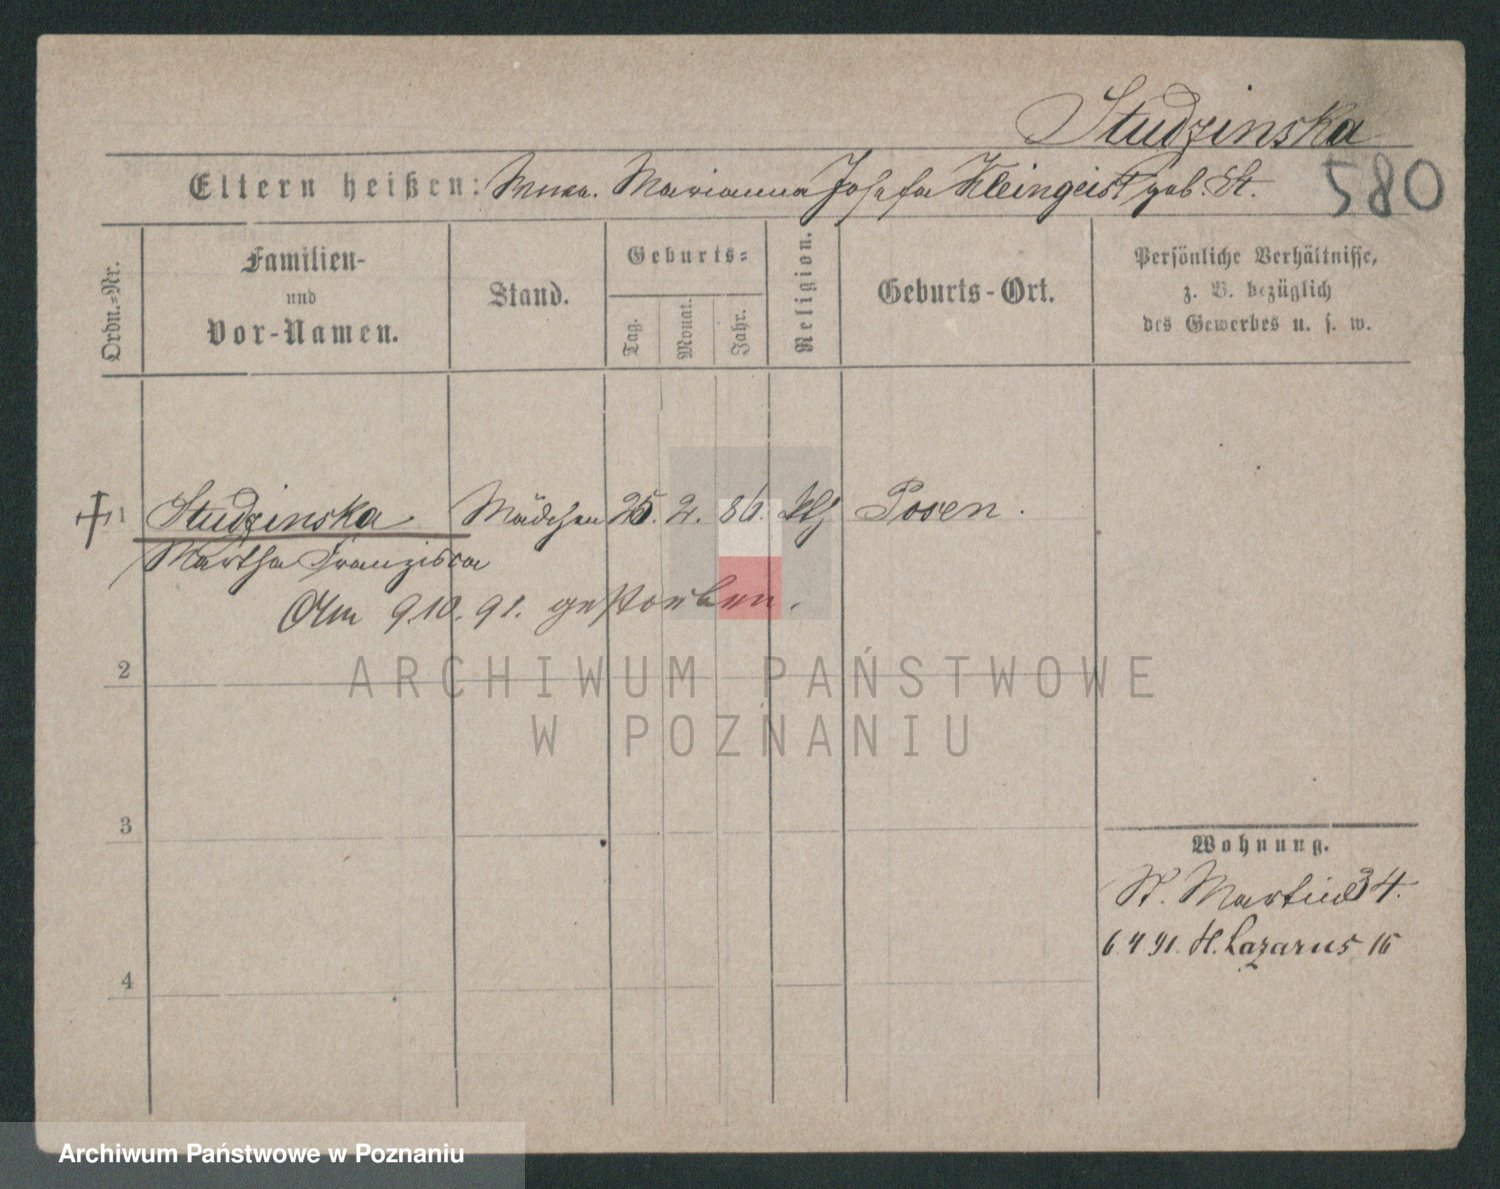 Studzinska
Eltern heißen: Marianna Josefa Kleingeist geb. St.
580
Ordn.-Nr.
Familien-
und
Vor-Namen.
Stand.
Geburts-
Tag.
Monat.
Jahr.
Religion.
Geburts-Ort.
Persönliche Verhältnisse,
z. B. bezüglich
des Gewerbes u. s. w.
1 Studzinska Mädchen 25. 2. 86. kth Posen.
Martha Franziska
Am 9.10.91. gestorben.
2
3
4
Wohnung.
St. Martin 34.
6.4.91. St. Lazarus 15
ARCHIWUM PAŃSTWOWE
W POZNANIU
Archiwum Państwowe w Poznaniu